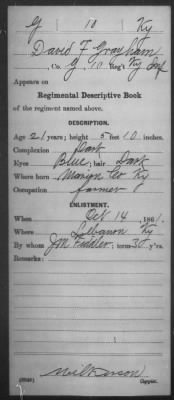 G 10 Ky
David F Grayham
, Co. G, 10 Reg't Ky Inf
Appears on
Regimental Descriptive Book
of the regiment named above.
DESCRIPTION.
Age 21 years; height 5 feet 10 inches.
Complexion Dark
Eyes Blue; hair Dark
Where born Marion Co Ky
Occupation farmer
ENLISTMENT.
When Oct 14, 1861.
Where Lebanon Ky
By whom J.M. Fidler; term 3 y'rs.
Remarks:
Copyist.